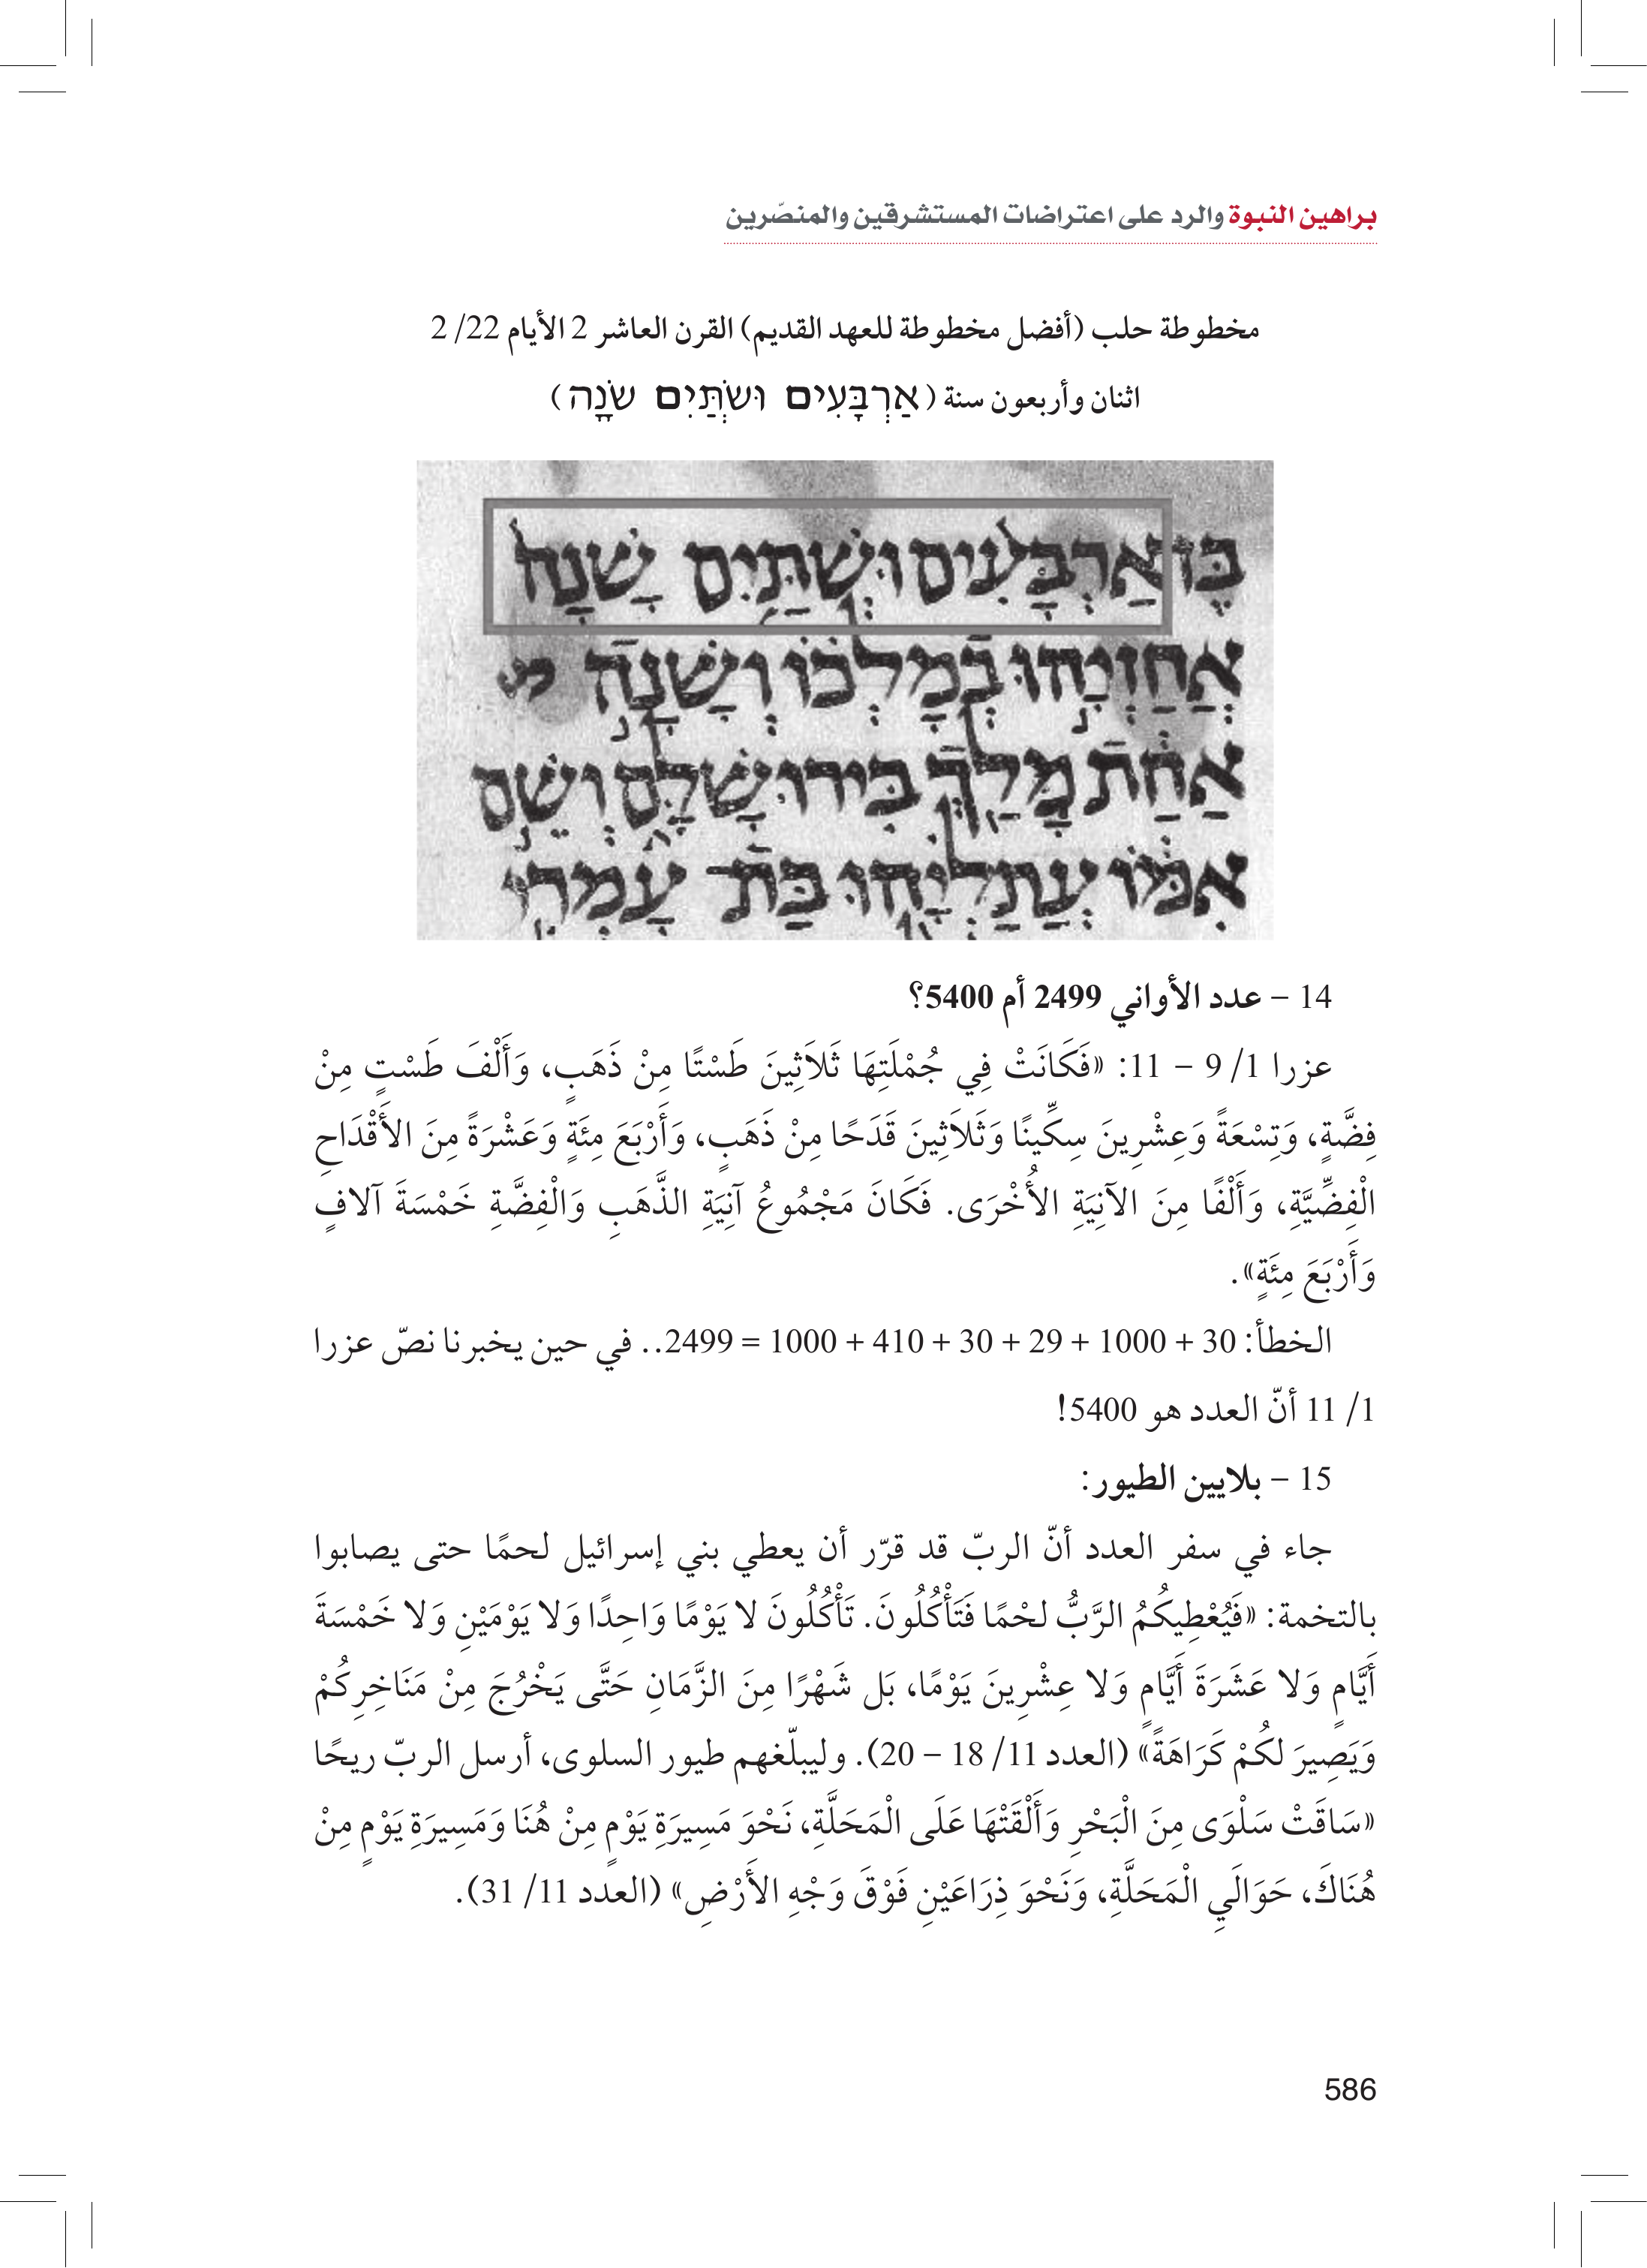 براهين النبوة والرد على اعتراضات المستشرقين والمنصّرين
مخطوطة حلب (أفضل مخطوطة للعهد القديم) القرن العاشر 2 الأيام 22/ 2
اثنان وأربعون سنة (אַרְבָּעִים וּשְׂתַּיִם שָׂנָה)
בֶּן אַרְבָּעִים וּשְׁתַּיִם שָׁנָה
אֲחַזְיָהוּ בְמָלְכוֹ וְשָׁנָה
אַחַת מָלַךְ בִּירוּשָׁלָ͏ִם וְשֵׁם
אִמּוֹ עֲתַלְיָהוּ בַּת־ עָמְרִי
14 – عدد الأواني 2499 أم 5400؟
عزرا 1/ 9 – 11: «فَكَانَتْ فِي جُمْلَتِهَا ثَلاَثِينَ طَسْتًا مِنْ ذَهَبٍ، وَأَلْفَ طَسْتٍ مِنْ
فِضَّةٍ، وَتِسْعَةً وَعِشْرِينَ سِكِّينًا وَثَلاَثِينَ قَدَحًا مِنْ ذَهَبٍ، وَأَرْبَعَ مِئَةٍ وَعَشْرَةً مِنَ الأَقْدَاحِ
الْفِضِّيَّةِ، وَأَلْفًا مِنَ الآنِيَةِ الأُخْرَى. فَكَانَ مَجْمُوعُ آنِيَةِ الذَّهَبِ وَالْفِضَّةِ خَمْسَةَ آلافٍ
وَأَرْبَعَ مِئَةٍ».
الخطأ: 30 + 1000 + 29 + 30 + 410 + 1000 = 2499.. في حين يخبرنا نصّ عزرا
1/ 11 أنّ العدد هو 5400!
15 – بلايين الطيور:
جاء في سفر العدد أنّ الربّ قد قرّر أن يعطي بني إسرائيل لحمًا حتى يصابوا
بالتخمة: «فَيُعْطِيكُمُ الرَّبُّ لحْمًا فَتَأْكُلُونَ. تَأْكُلُونَ لا يَوْمًا وَاحِدًا وَلا يَوْمَيْنِ وَلا خَمْسَةَ
أَيَّامٍ وَلا عَشَرَةَ أَيَّامٍ وَلا عِشْرِينَ يَوْمًا، بَل شَهْرًا مِنَ الزَّمَانِ حَتَّى يَخْرُجَ مِنْ مَنَاخِرِكُمْ
وَيَصِيرَ لكُمْ كَرَاهَةً» (العدد 11/ 18 – 20). وليبلّغهم طيور السلوى، أرسل الربّ ريحًا
«سَاقَتْ سَلْوَى مِنَ الْبَحْرِ وَأَلْقَتْهَا عَلَى الْمَحَلَّةِ، نَحْوَ مَسِيرَةِ يَوْمٍ مِنْ هُنَا وَمَسِيرَةِ يَوْمٍ مِنْ
هُنَاكَ، حَوَالَيِ الْمَحَلَّةِ، وَنَحْوَ ذِرَاعَيْنِ فَوْقَ وَجْهِ الأَرْضِ» (العدد 11/ 31).
586